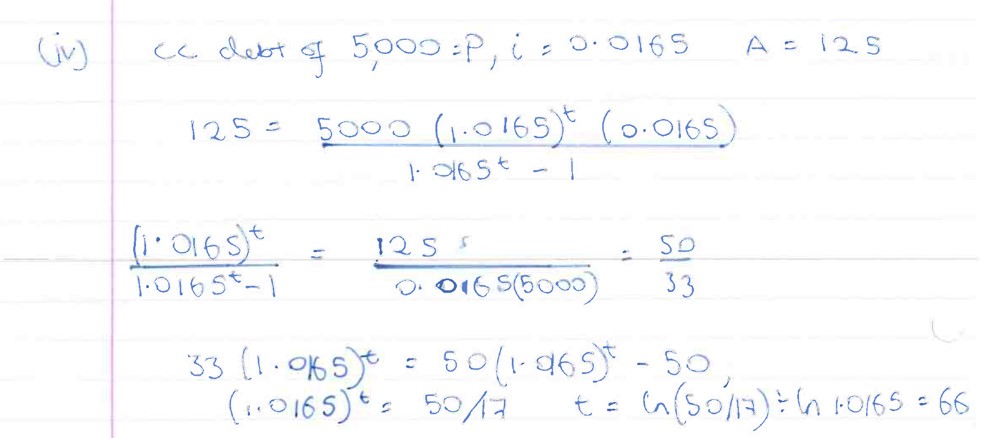 (iv) cc debt of 5,000 = P, i = 0.0165 A = 125
125 = 5000 (1.0165)^t (0.0165)
1.0165^t - 1
(1.0165)^t = 125 = 50
1.0165^t - 1 0.0165(5000) 33
33 (1.0165)^t = 50 (1.0165)^t - 50,
(1.0165)^t = 50/17 t = ln(50/17) ÷ ln 1.0165 = 66